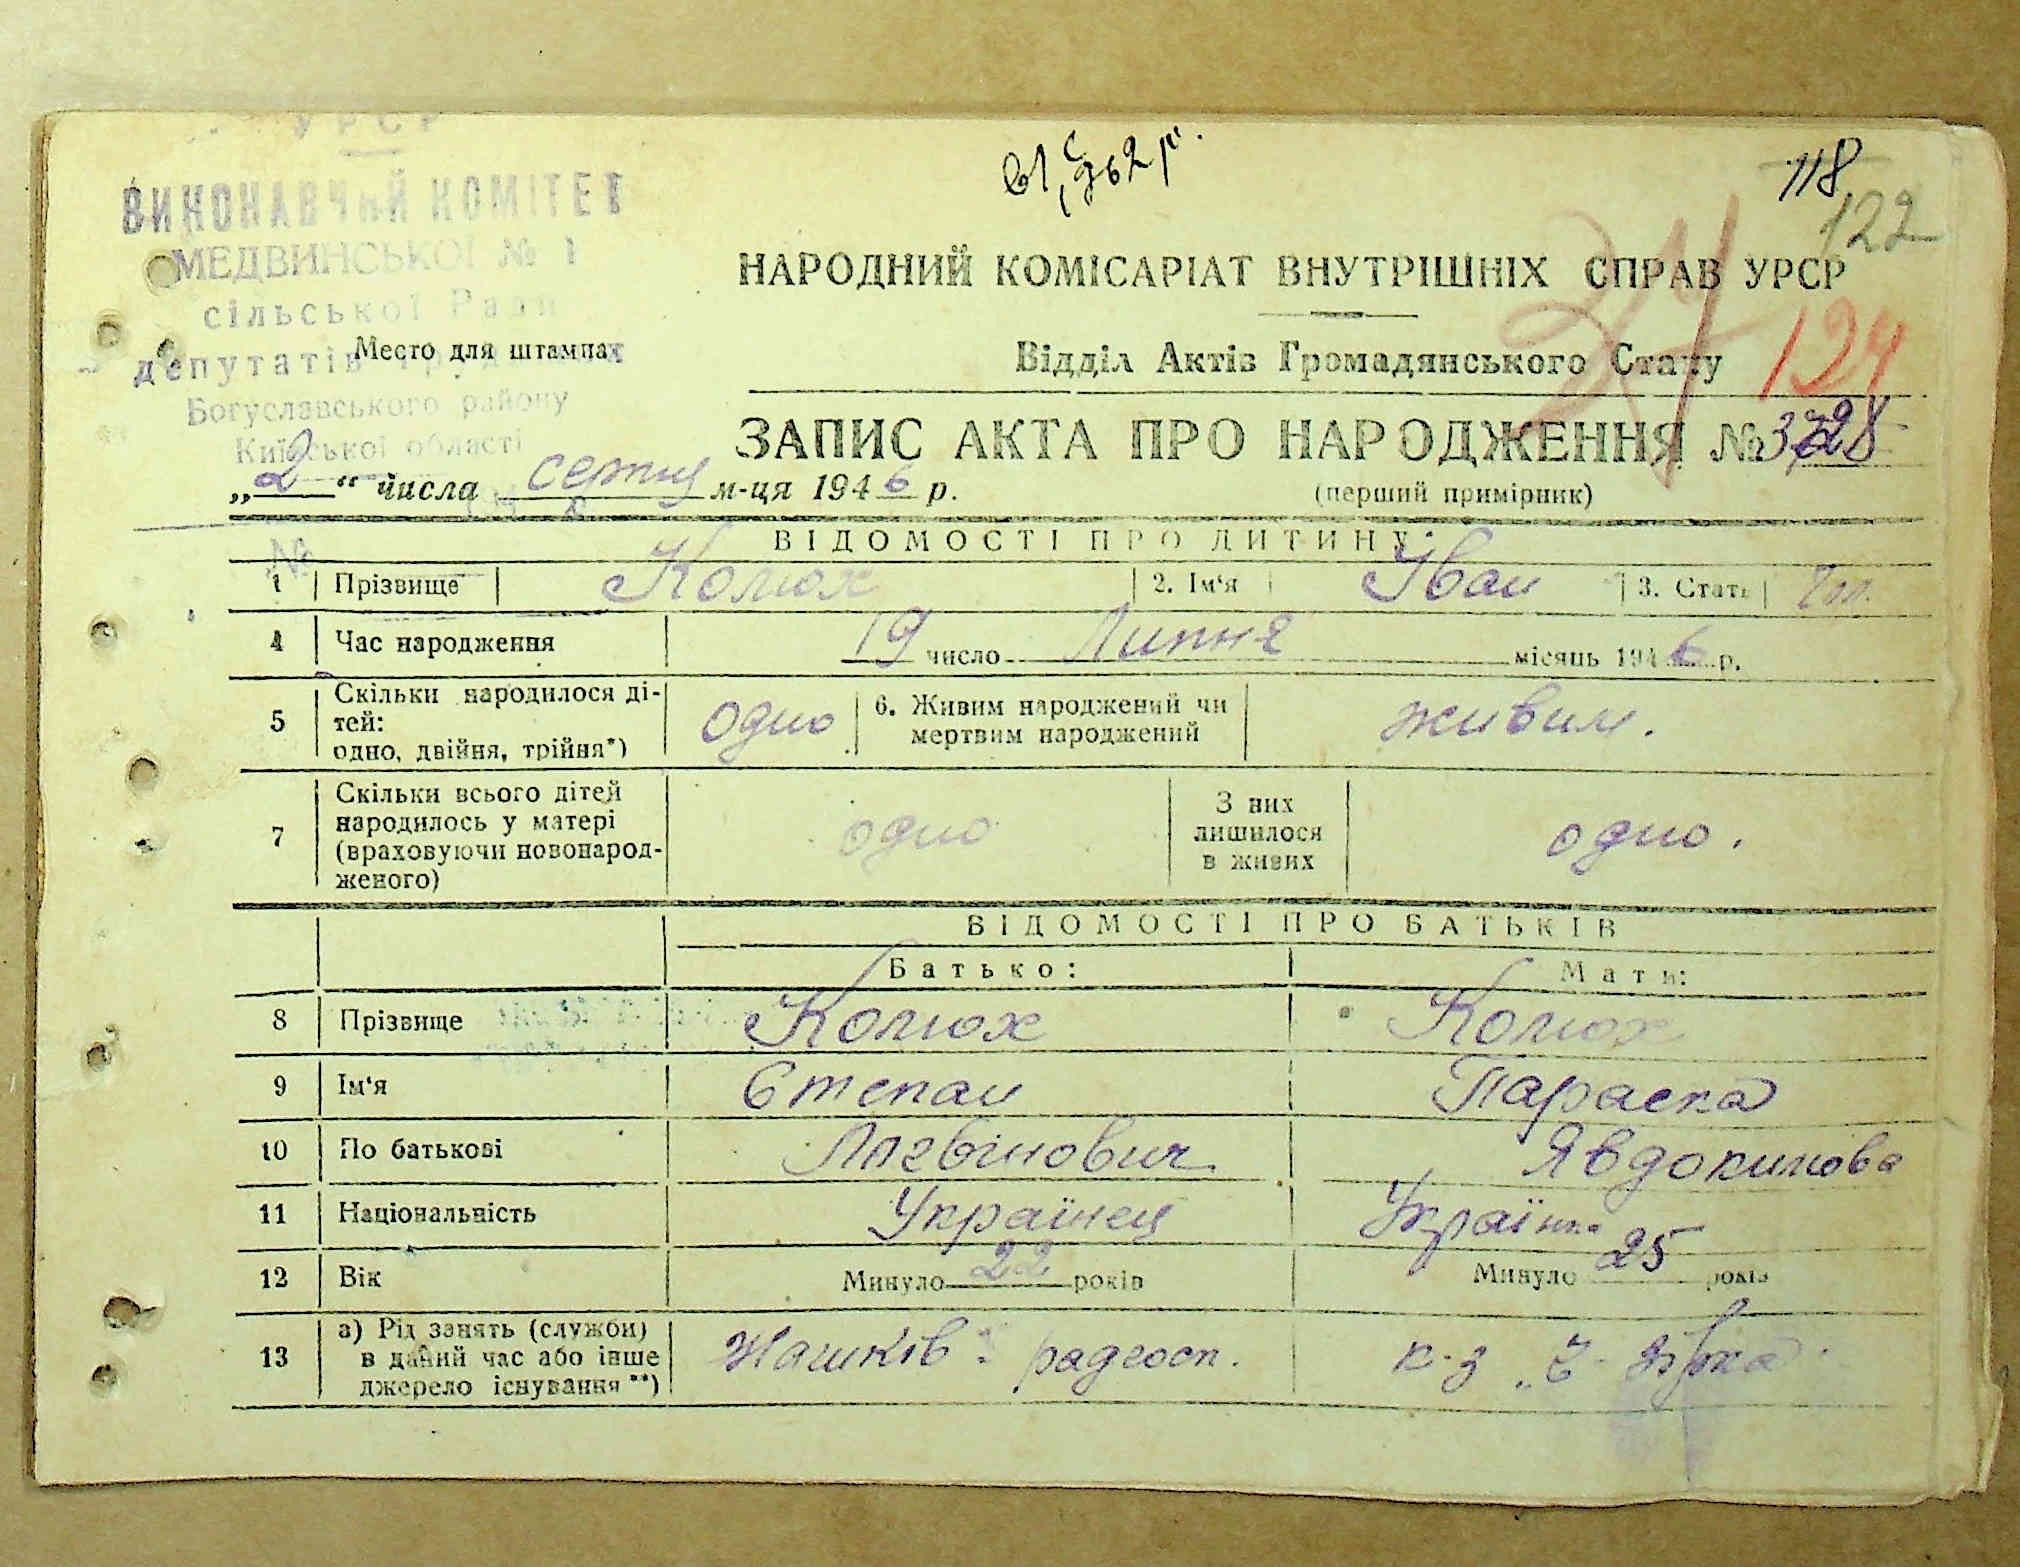 УРСР
ВИКОНАВЧИЙ КОМІТЕТ
МЕДВИНСЬКОЇ № 1
сільської Ради
депутатів трудящих
Богуславського району
Київської області
Место для штампа
118
122
124
НАРОДНИЙ КОМІСАРІАТ ВНУТРІШНІХ СПРАВ УРСР
Відділ Актів Громадянського Стану
ЗАПИС АКТА ПРО НАРОДЖЕННЯ №
(перший примірник)
„2“ числа серпня м-ця 1946 р.
№
ВІДОМОСТІ ПРО ДИТИНУ
1 Прізвище Колюх 2. Ім'я Іван 3. Стать Чол.
4 Час народження 19 число Липня місяць 1946 р.
5 Скільки народилося ді-
тей:
одно, двійня, трійня*) одно 6. Живим народжений чи
мертвим народжений живим.
7 Скільки всього дітей
народилось у матері
(враховуючи новонарод-
женого) одно З них
лишилося
в живих одно.
ВІДОМОСТІ ПРО БАТЬКІВ
Батько: Мати:
8 Прізвище Колюх Колюх
9 Ім'я Степан Параска
10 По батькові Логвінович Явдокимова
11 Національність Українец Українка
12 Вік Минуло 22 років Минуло 25 років
13 а) Рід занять (служби)
в даний час або інше
джерело існування **) Жашків. радгосп. к-з „Ч. Зірка